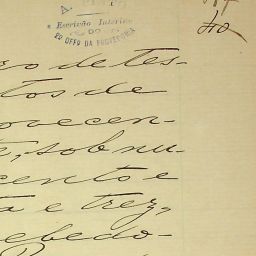 Escrivão Interino
DO
2º OFFº DA PROVEDORIA
40
ro de tes-
tos de
ovecen-
, sob nu-
cento e
ta e trez,
ebedo-